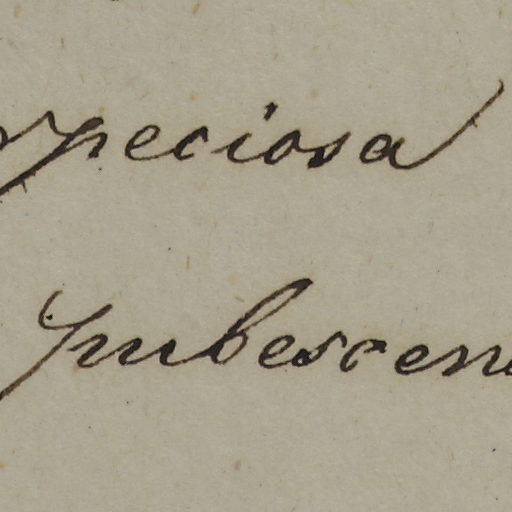 speciosa
pubescen